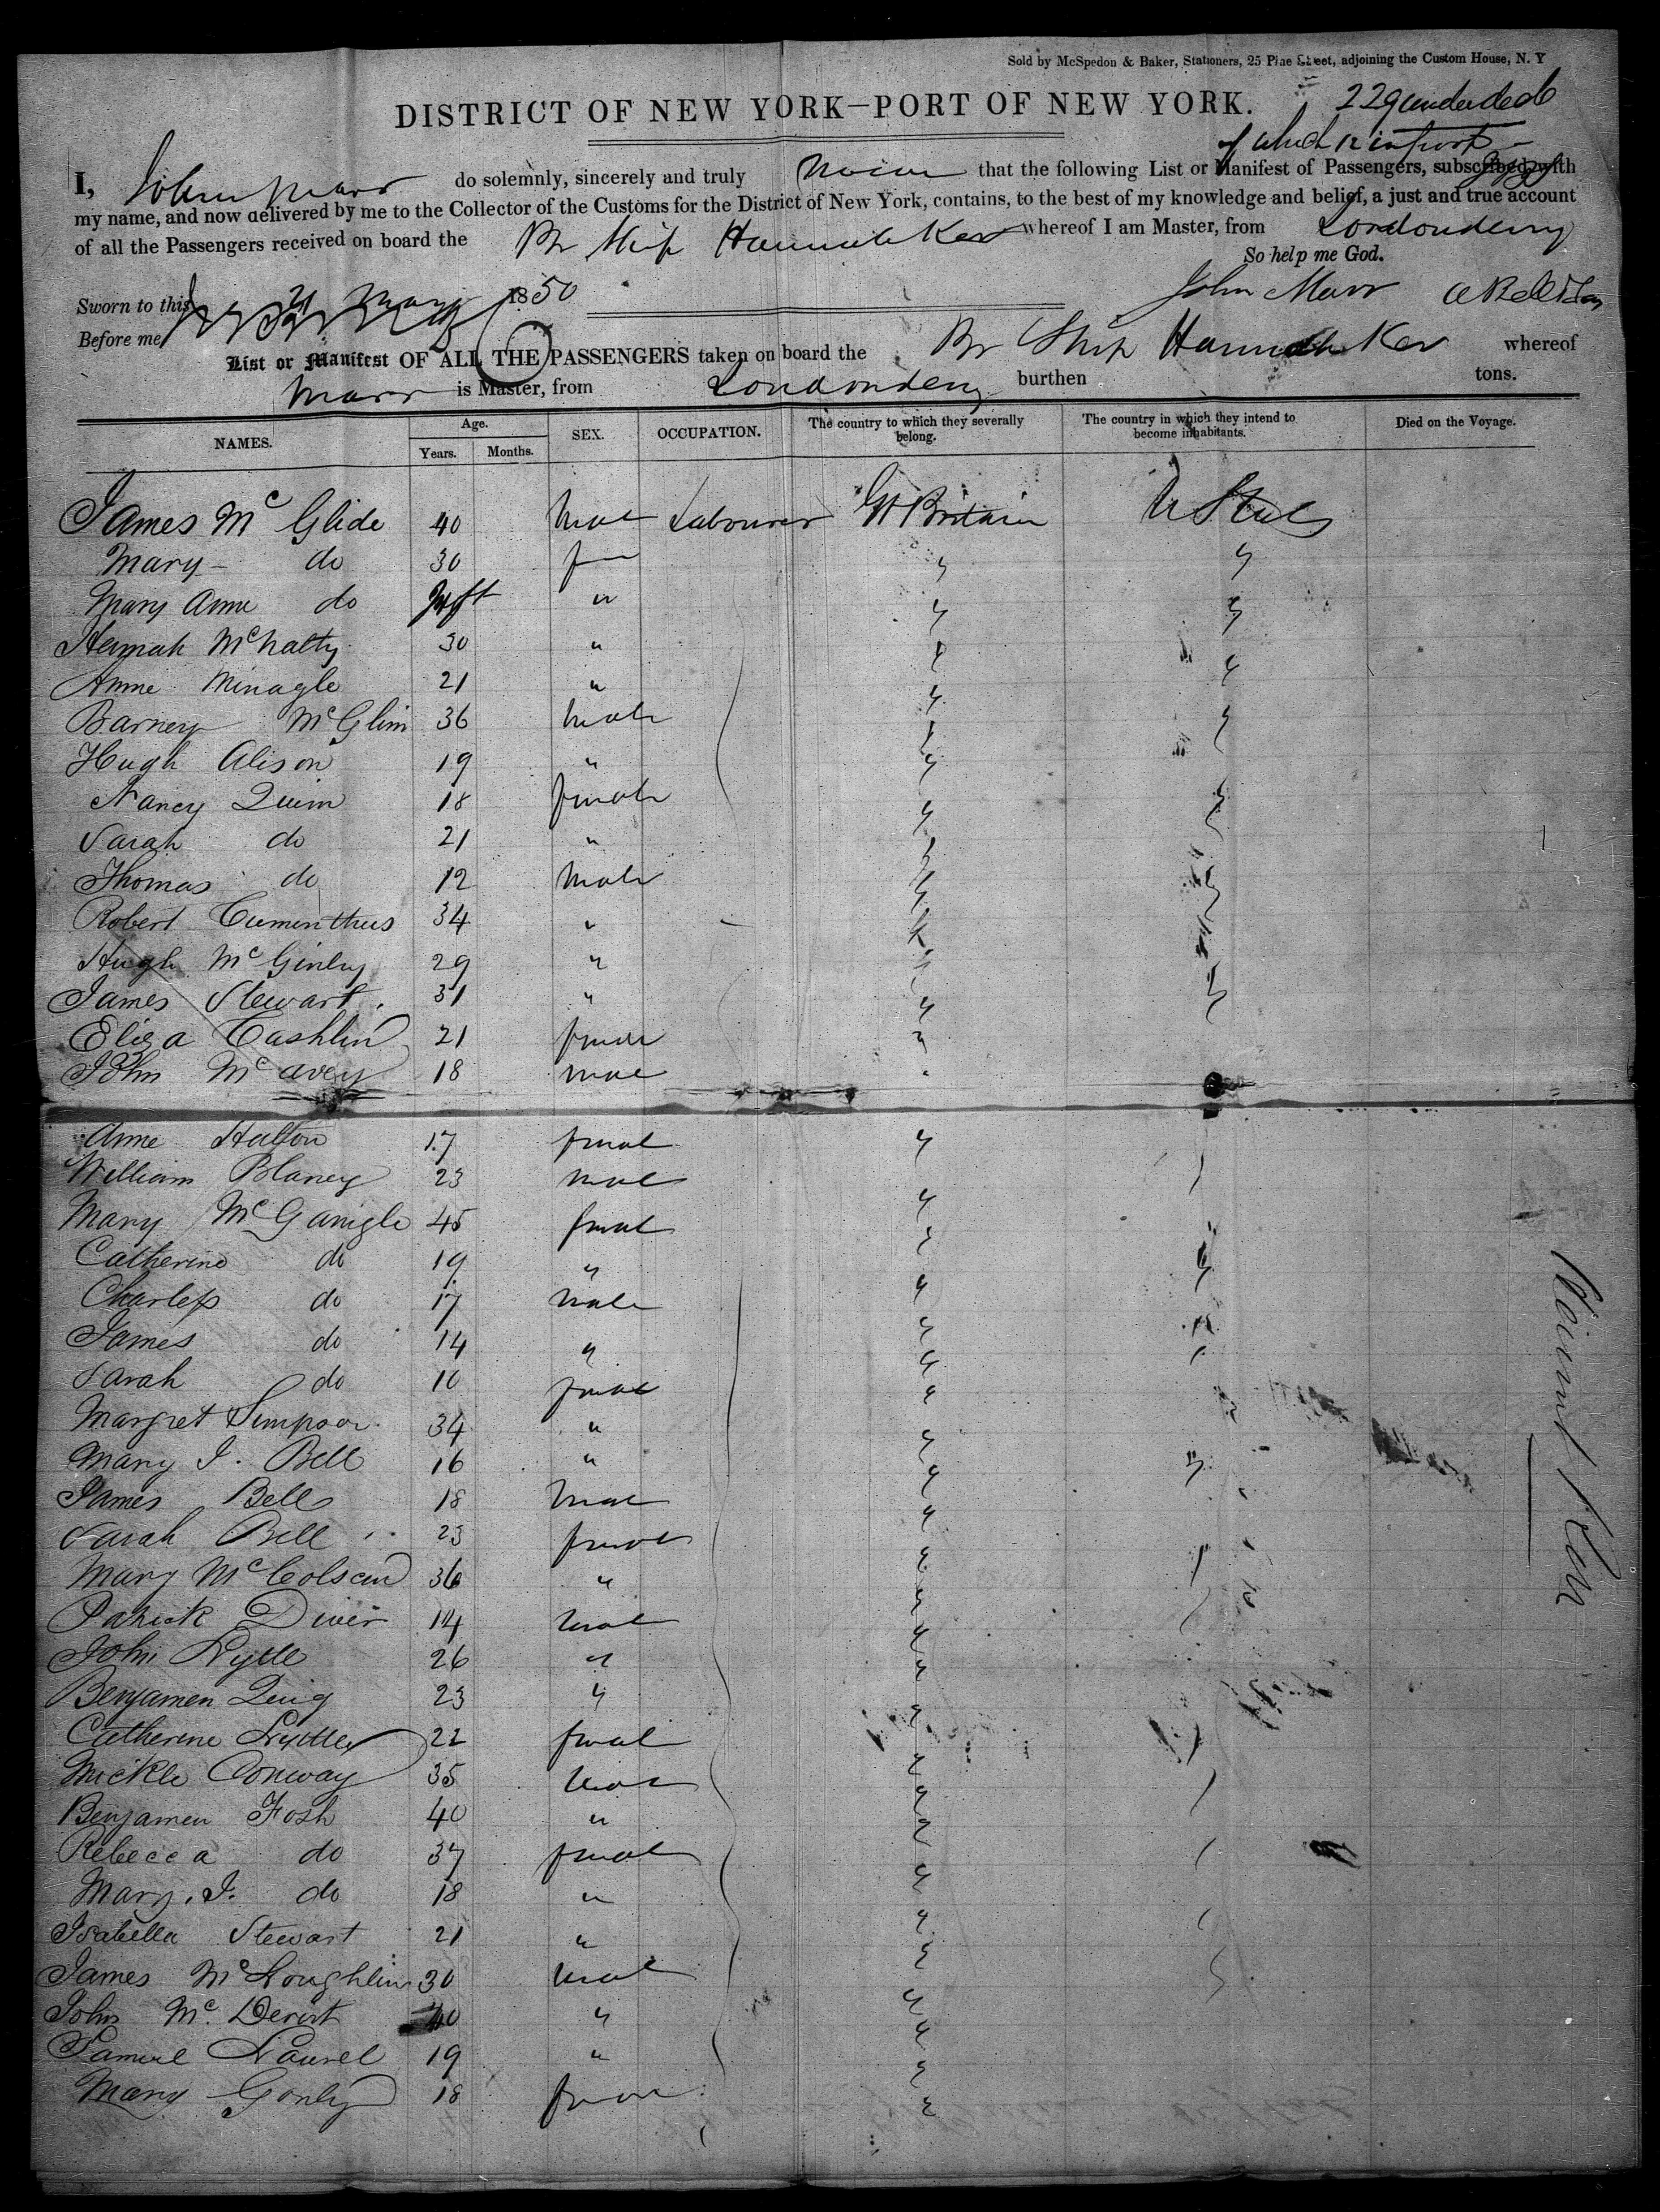 Sold by McSpedon & Baker, Stationers, 25 Pine Street, adjoining the Custom House, N. Y
DISTRICT OF NEW YORK—PORT OF NEW YORK.
229 underdeck
of which 12 infants
I, John Marr do solemnly, sincerely and truly swear that the following List or Manifest of Passengers, subscribed with
my name, and now delivered by me to the Collector of the Customs for the District of New York, contains, to the best of my knowledge and belief, a just and true account
of all the Passengers received on board the Br Ship Hannah Kerr whereof I am Master, from Londonderry
So help me God.
Sworn to this 21 May 1850
John Marr
Before me
List or Manifest OF ALL THE PASSENGERS taken on board the Br Ship Hannah Kerr whereof
Marr is Master, from Londonderry burthen tons.
NAMES. Age. Years. Months. SEX. OCCUPATION. The country to which they severally belong. The country in which they intend to become inhabitants. Died on the Voyage.
James Mc Glide 40 Male Labourer Gt Britain U States
Mary do 30 fem " "
Mary Anne do Inft " " "
Hannah McNalty 30 " " "
Anne Minagle 21 " " "
Barney McGlin 36 Male " "
Hugh Alison 19 " "
Nancy Quin 18 female " "
Sarah do 21 " "
Thomas do 12 Male " "
Robert 34 " "
Hugh McGinley 29 " "
James Stewart 31 " "
Eliza Cashlin 21 female "
John McAvey 18 male "
Anne Halton 17 female "
William Blaney 23 male "
Mary McGanigle 45 female "
Catherine do 19 " " "
Charless do 17 male "
James do 14 " "
Sarah do 10 female "
Margret Simpson 34 " "
Mary J. Bell 16 " " "
James Bell 18 male "
Sarah Bell 23 female "
Mary McColscan 36 " "
Patrick Diver 14 male "
John Lytle 26 " "
Benjamen Quig 23 " "
Catherine Lyttle 22 female "
Mickle Conway 35 male "
Benjamen Fosh 40 " "
Rebecca do 37 female "
Mary. J. do 18 " "
Isabella Stewart 21 " "
James McLoughlin 30 male "
John Mc. Devit 40 " "
Samuel Laurel 19 " "
Mary Gonly 18 female "